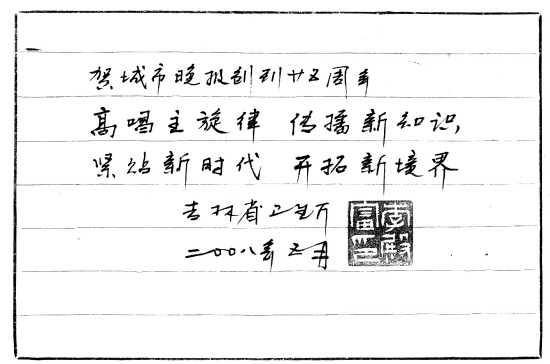 贺城市晚报创刊廿五周年
高唱主旋律 传播新知识,
紧贴新时代 开拓新境界
吉林省卫生厅
二〇〇八年五月